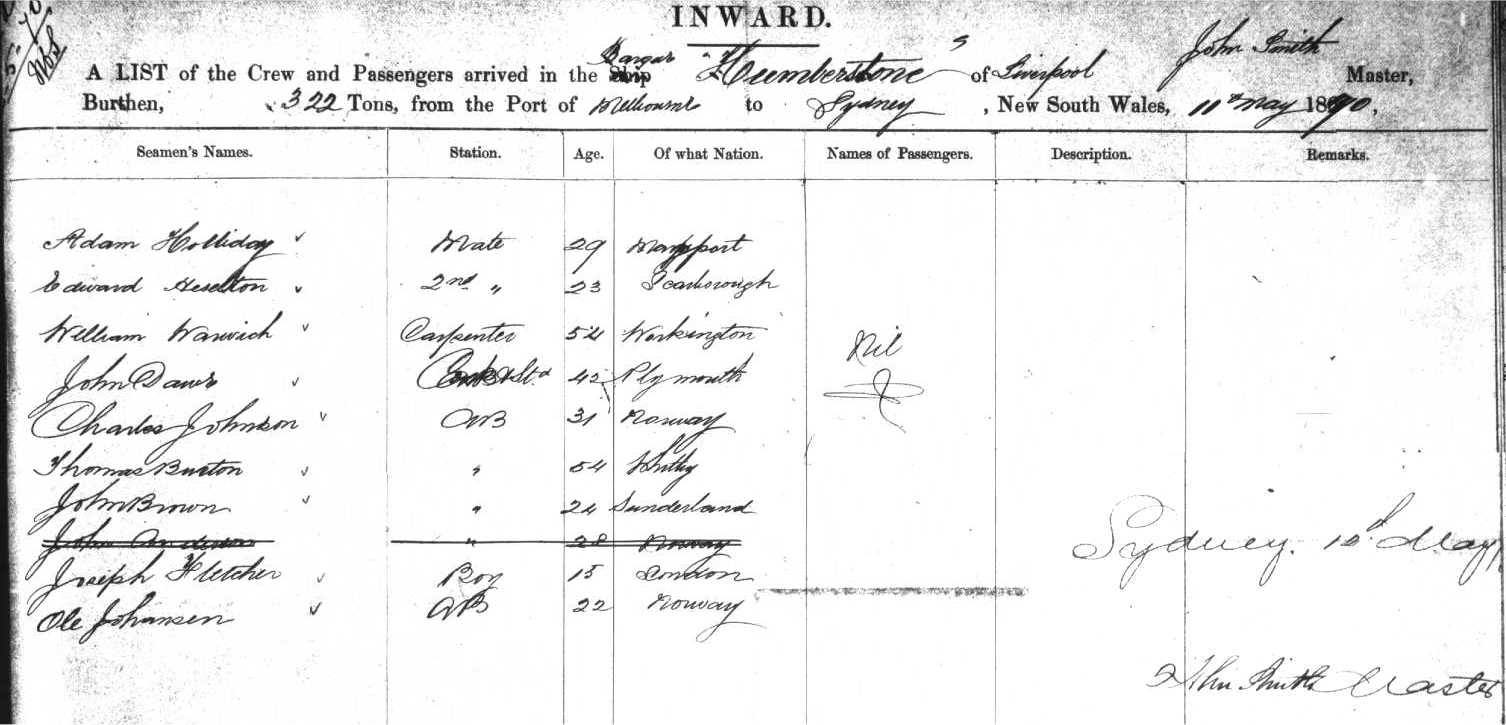 INWARD.
A LIST of the Crew and Passengers arrived in the Ship Barque "Humberstone" of Liverpool John Smith Master,
Burthen, 322 Tons, from the Port of Melbourne to Sydney, New South Wales, 11th May 1870,
Seamen's Names. Station. Age. Of what Nation. Names of Passengers. Description. Remarks.
Adam Holliday Mate 29 Maryport
Edward Heselton 2nd " 23 Scarborough
William Warwick Carpenter 54 Workington
Nil
John Daws Cook & Std 42 Plymouth
Charles Johnson AB 31 Norway
Thomas Burton " 54 Whitby
John Brown " 24 Sunderland
John Anderson " 28 Norway
Sydney. May
Joseph Fletcher Boy 15 London
Ole Johansen AB 22 Norway
John Smith Master